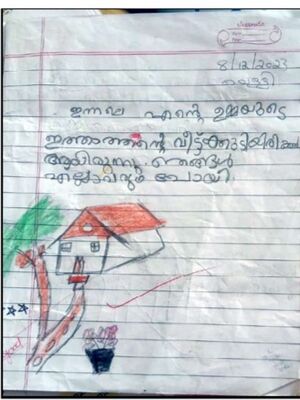 8/12/2023
വെള്ളി
ഇന്നലെ എന്റെ ഉമ്മയുടെ
ഇത്താത്തന്റെ വീട്ട്ക്കുടിയിരിക്കൽ
ആയിരുന്നു. ഞങ്ങൾ
എല്ലാവരും പോയി.
good